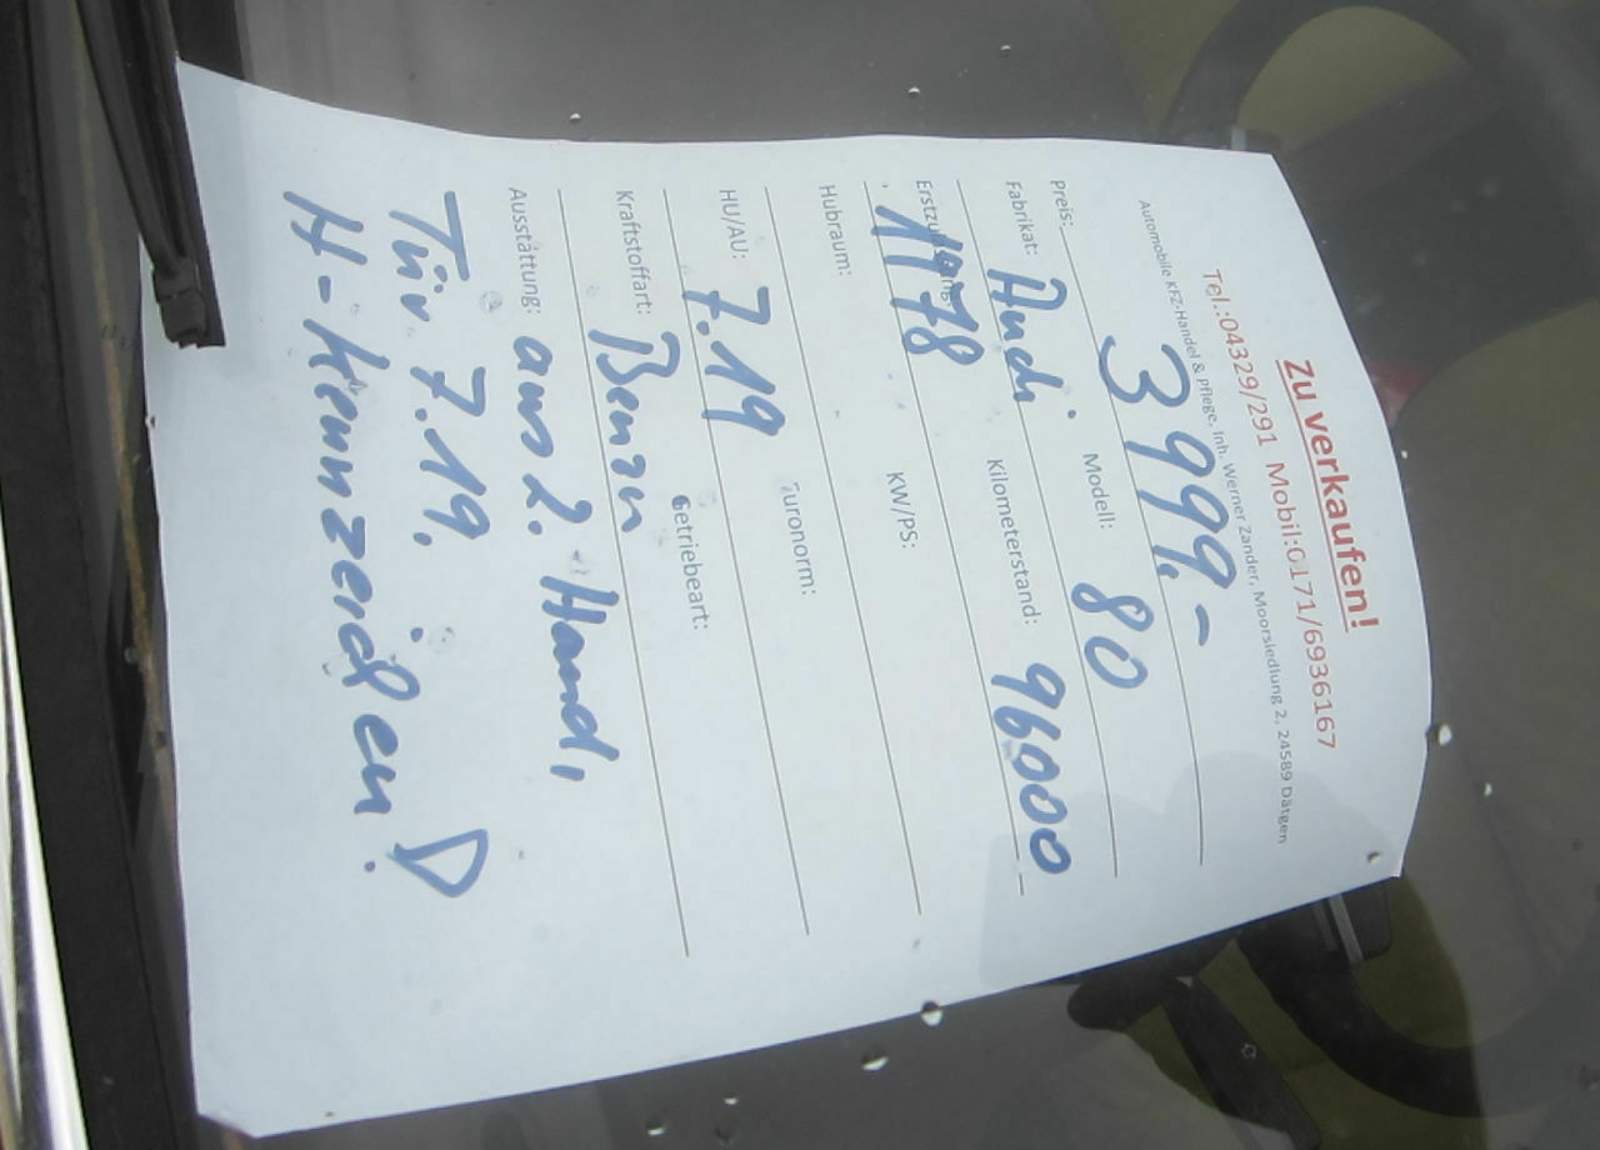 Zu verkaufen!
Tel.:04329/291 Mobil:0171/6936167
Automobile KFZ-Handel & Pflege, Inh. Werner Zander, Moorsiedlung 2, 24589 Dätgen
Preis: 3999.-
Fabrikat: Audi Modell: 80
Erstzulassung: 1178 Kilometerstand: 96000
Hubraum: KW/PS:
HU/AU: 7.19 Euronorm:
Kraftstoffart: Benzin Getriebeart:
Ausstattung: aus 2. Hand,
Tüv 7.19.
H-Kennzeichen!